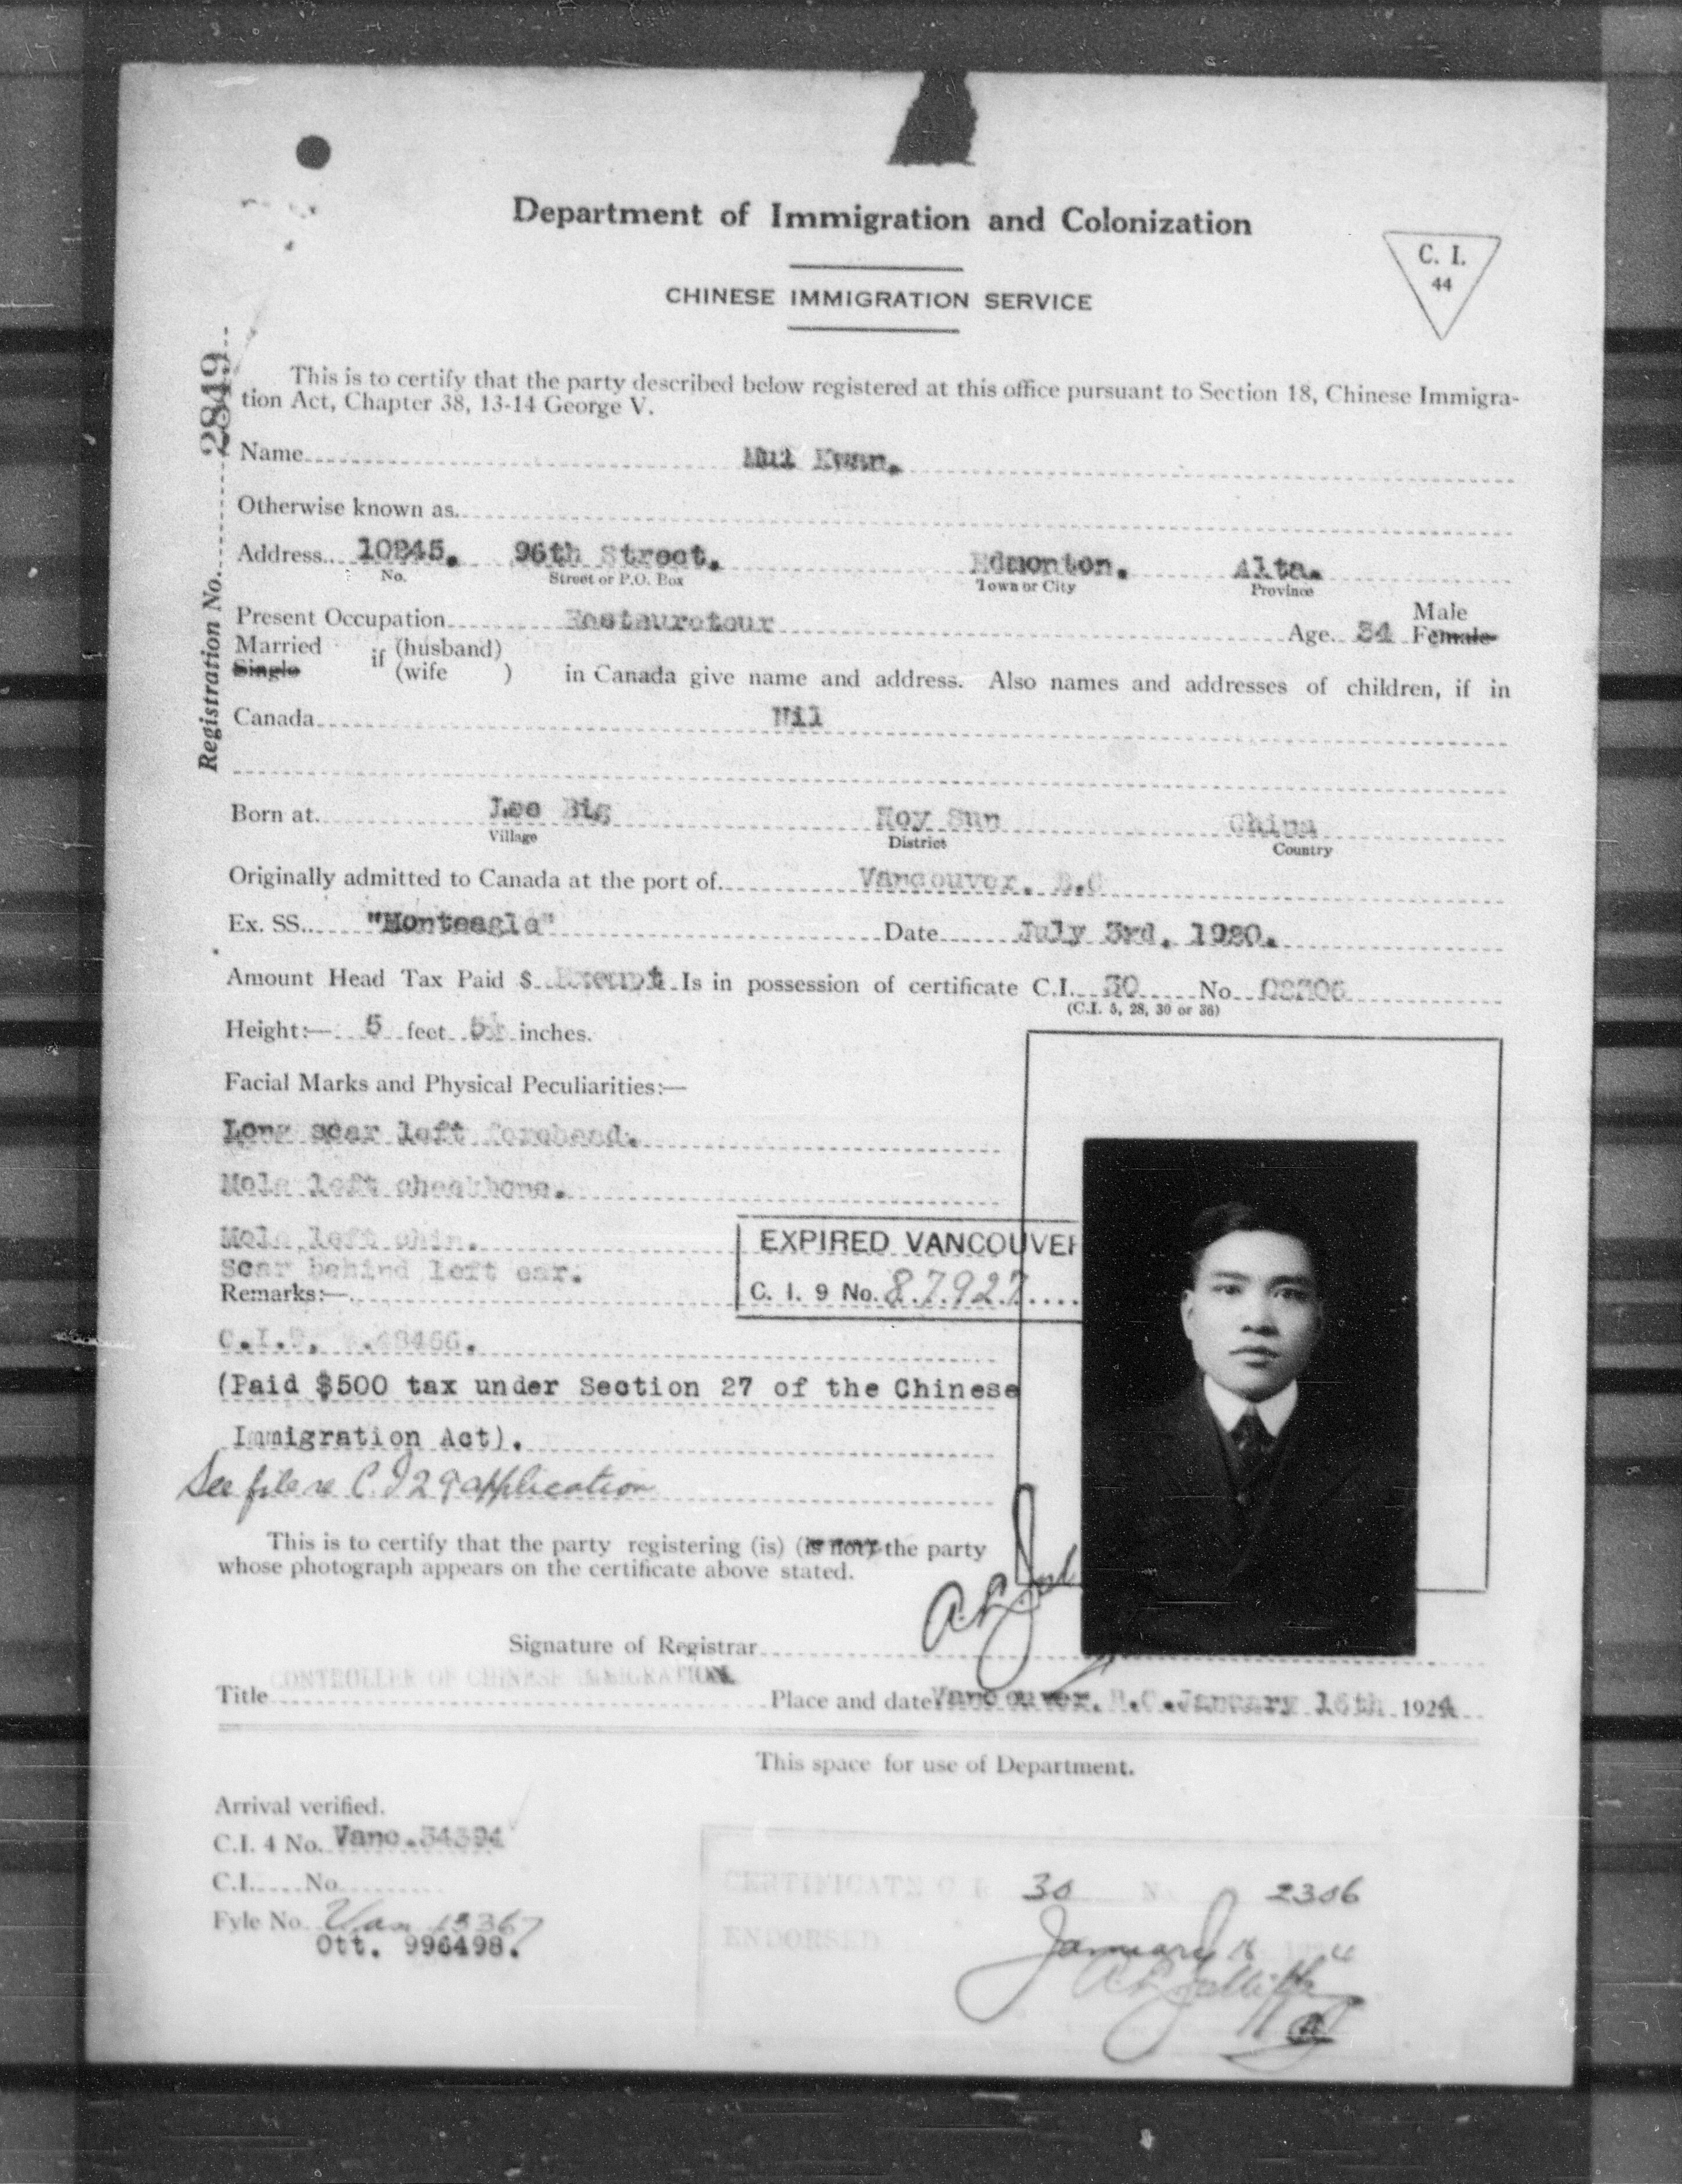 Department of Immigration and Colonization
CHINESE IMMIGRATION SERVICE
C. I.
44
Registration No. 2849
This is to certify that the party described below registered at this office pursuant to Section 18, Chinese Immigra-
tion Act, Chapter 38, 13-14 George V.
Name Mui Kwan.
Otherwise known as
Address 10245. 96th Street. Edmonton. Alta.
No. Street or P.O. Box Town or City Province
Present Occupation Restauratour Age 34 Male Female
Married Single if (husband) (wife ) in Canada give name and address. Also names and addresses of children, if in
Canada Nil
Born at Lee Big Hoy Sun China
Village District Country
Originally admitted to Canada at the port of Vancouver. B.C
Ex. SS. "Monteagle" Date July 3rd. 1920.
Amount Head Tax Paid $ Exempt Is in possession of certificate C.I. 30 No 02306
(C.I. 5, 28, 30 or 36)
Height:— 5 feet 5½ inches.
Facial Marks and Physical Peculiarities:—
Long scar left forehead.
Mole left cheekbone.
Mole left chin.
Scar behind left ear.
EXPIRED VANCOUVER
C. I. 9 No. 87927
Remarks:—
C.I.9. 48466.
(Paid $500 tax under Section 27 of the Chinese
Immigration Act).
See file re C.I 29 application
This is to certify that the party registering (is) (is not) the party
whose photograph appears on the certificate above stated.
Signature of Registrar
CONTROLLER OF CHINESE IMMIGRATION
Title Place and date Vancouver. B.C. January 16th 1924
This space for use of Department.
Arrival verified.
C.I. 4 No. Vanc. 34394
C.I. No
Fyle No. Van 13367
Ott. 996498.
CERTIFICATE C.I. 30 No 2306
ENDORSED January 16 1924